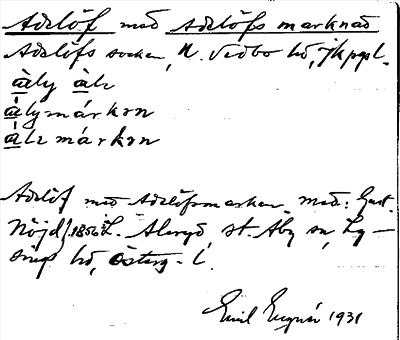 Adelöf med Adelöfs marknad
Adelöfs socken, N. Vedbo hd, Jkpgs l.
àly àlz
àlymárkǝn
àlz márkǝn
Adelöf med Adelöfsmarken med: Gust.
Nöjd f. 1852 Aleryd, st. Åby sn, Ly-
sings hd, Österg. l.
Emil 1931